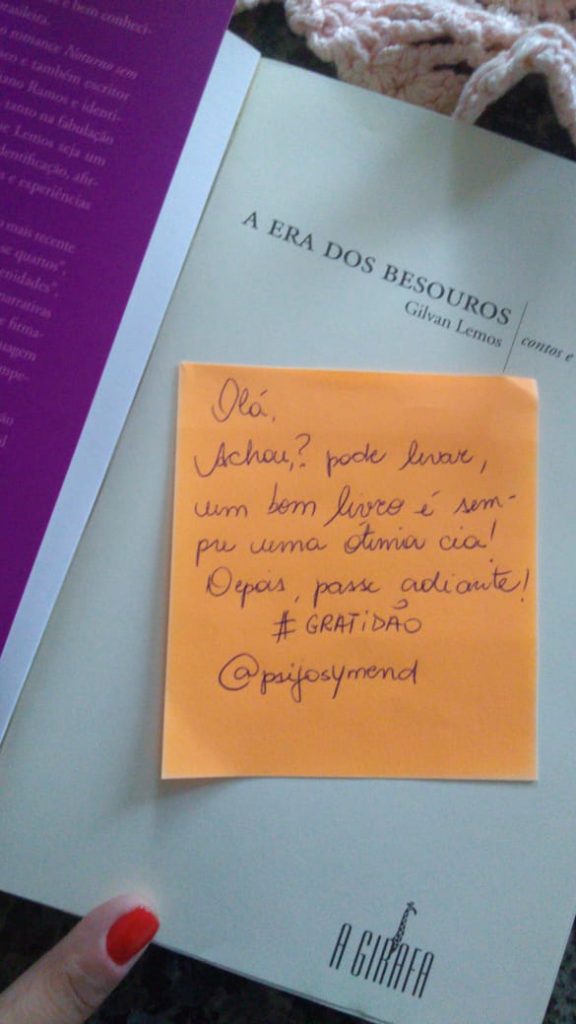 e bem conheci-
brasileira.
romance Noturno sem
e também escritor
Ramos e identi-
tanto na fabulação
Lemos seja um
identificação, afir-
s e experiências
mais recente
se quartos",
enidades".
narrativas
e firma-
uagem
mpe-
A ERA DOS BESOUROS
Gilvan Lemos
contos e
Olá,
Achou,? pode levar,
um bom livro é sem-
pre uma ótima cia!
Depois, passe adiante!
# GRATIDÃO
@psijosymend
A GIRAFA